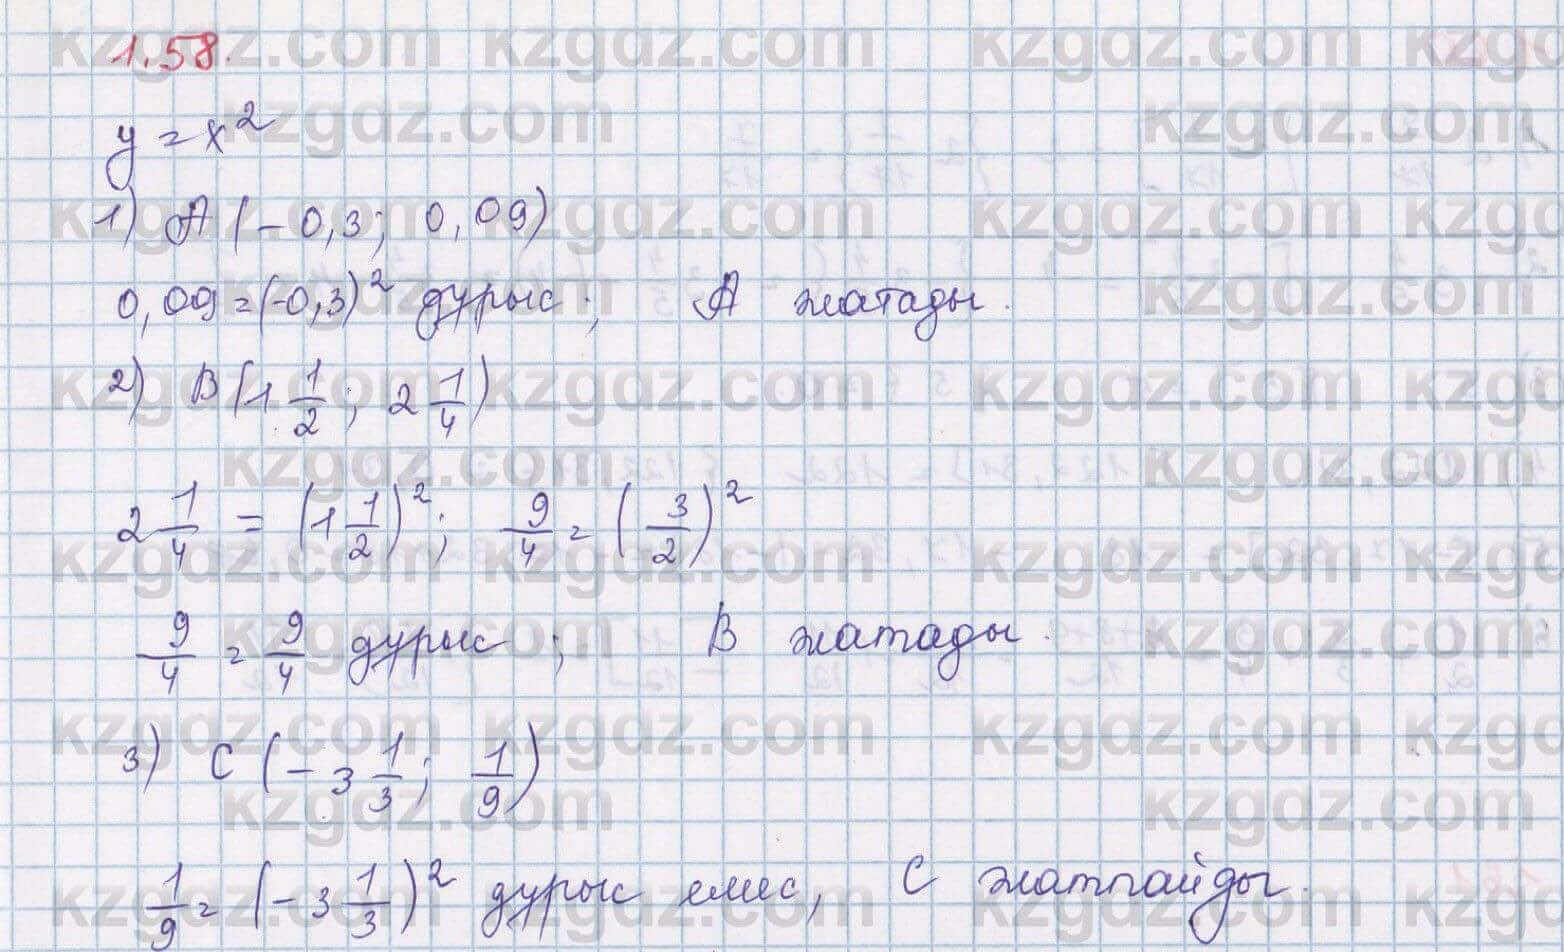 1.58.
y = x²
1) A (-0,3; 0,09)
0,09 = (-0,3)² дұрыс; A жатады.
2) B (1 1/2; 2 1/4)
2 1/4 = (1 1/2)²; 9/4 = (3/2)²
9/4 = 9/4 дурыс; B жатады.
3) C (-3 1/3; 1/9)
1/9 = (-3 1/3)² дурыс емес, C жатпайды.
kzgdz.com